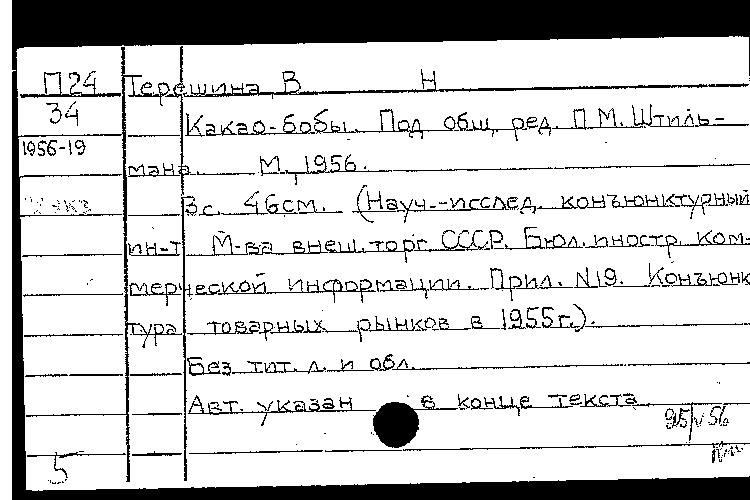 П24 Терешина, В Н
34
Какао-бобы. Под общ. ред. П.М. Штиль-
1956-19
мана. М., 1956.
3с. 46см. (Науч.-исслед. конъюнктурный
ин-т М-ва внеш. торг. СССР. Бюл. иностр. ком-
мерческой информации. Прил. N19. Конъюнк
тура товарных рынков в 1955г.).
Без тит. л. и обл.
Авт. указан в конце текста
5